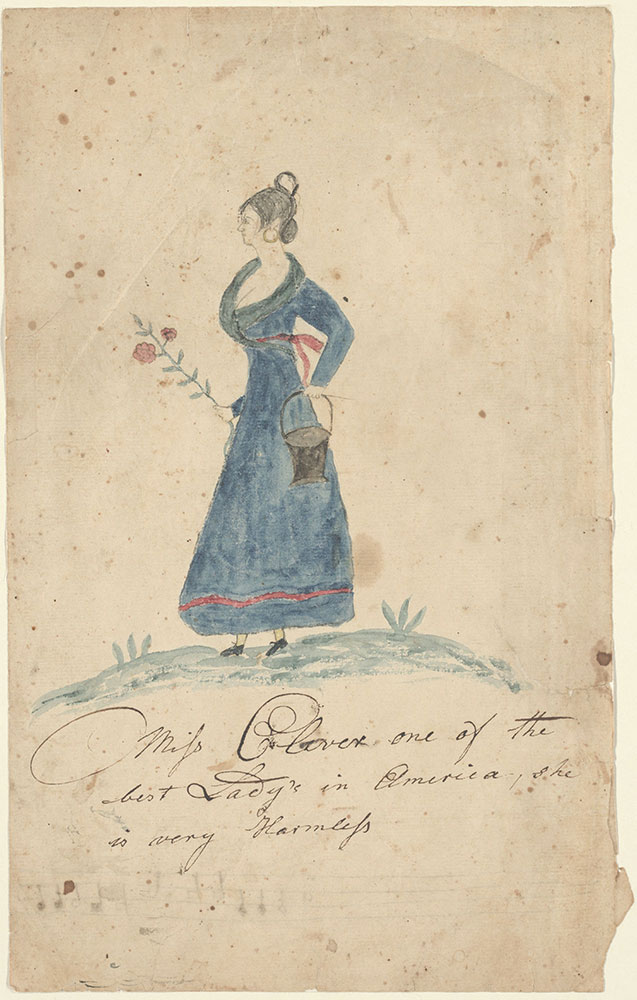 Miss Clever one of the
best Lady's in America, she
is very Harmless